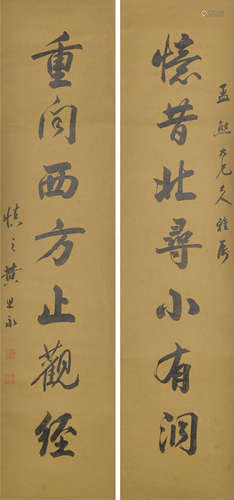 孟熊大兄大人雅屬
憶昔北尋小有洞
重問西方止觀經
慎之黃思永